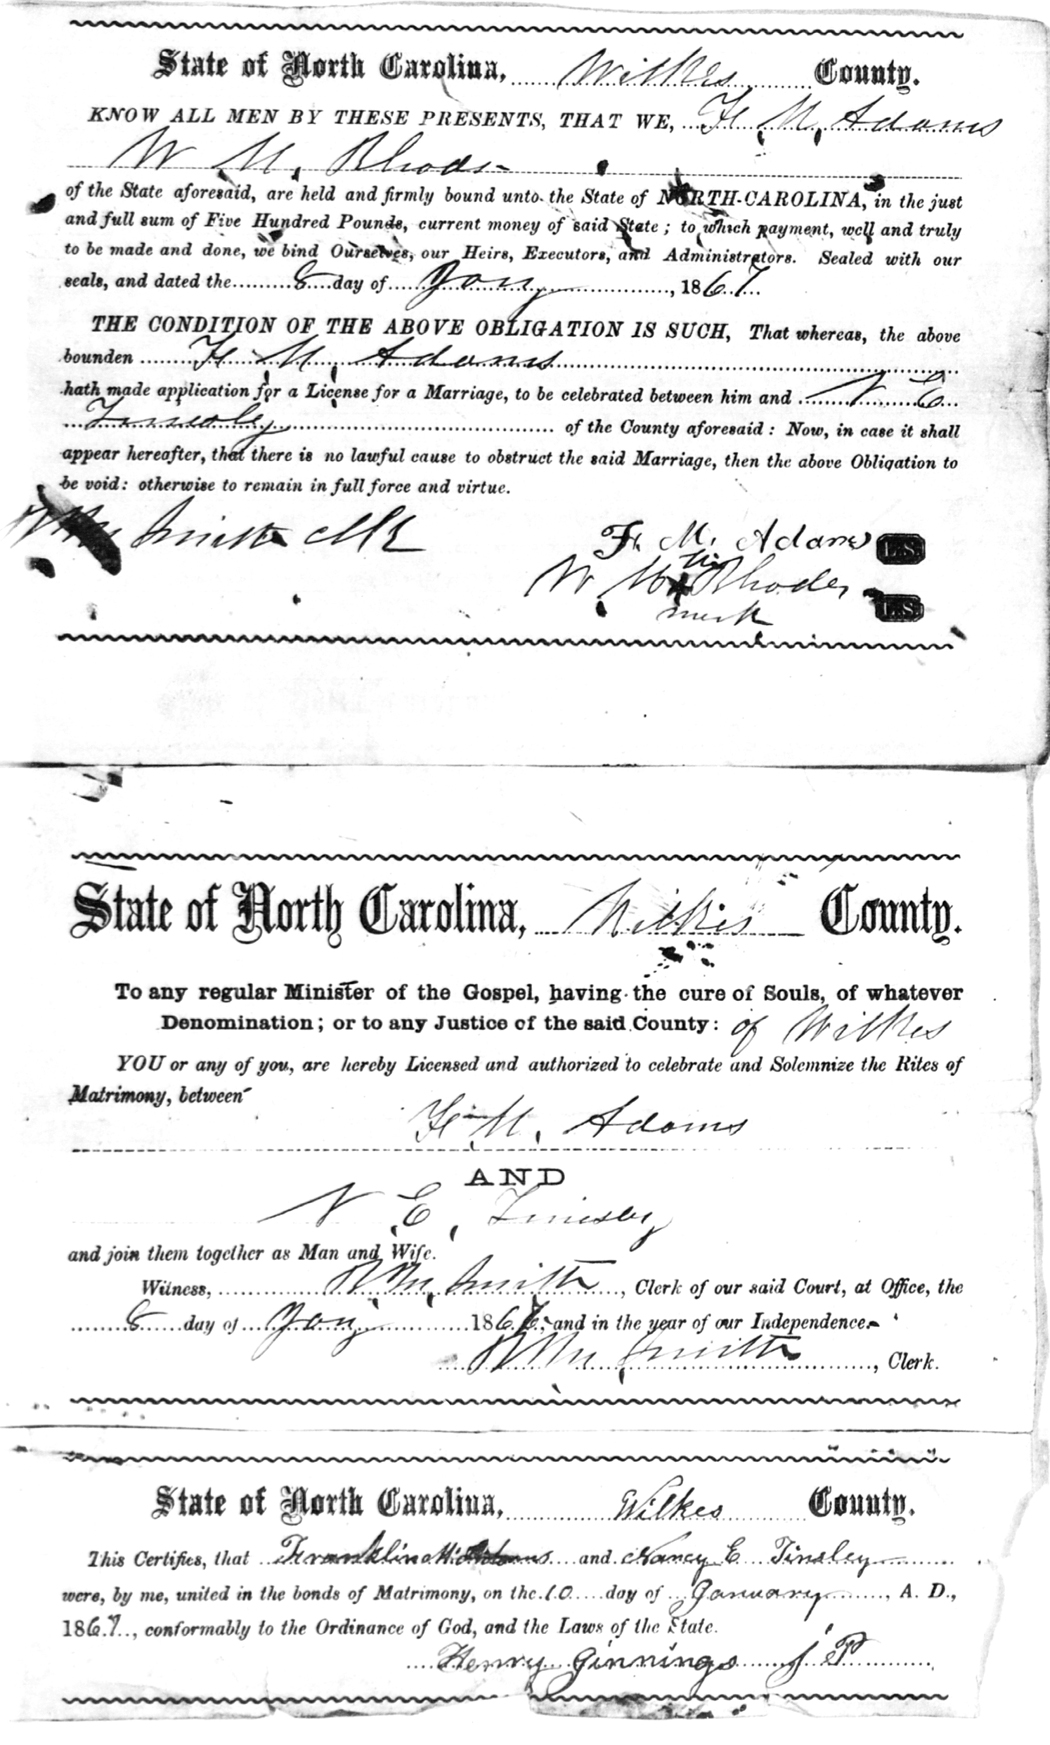 State of North Carolina, Wilkes County.
KNOW ALL MEN BY THESE PRESENTS, THAT WE, F. M. Adams
W. M. Rhods
of the State aforesaid, are held and firmly bound unto the State of NORTH-CAROLINA, in the just
and full sum of Five Hundred Pounds, current money of said State; to which payment, well and truly
to be made and done, we bind Ourselves, our Heirs, Executors, and Administrators. Sealed with our
seals, and dated the 8 day of Jany, 1867
THE CONDITION OF THE ABOVE OBLIGATION IS SUCH, That whereas, the above
bounden F. M. Adams
hath made application for a License for a Marriage, to be celebrated between him and N E
Tinsley of the County aforesaid: Now, in case it shall
appear hereafter, that there is no lawful cause to obstruct the said Marriage, then the above Obligation to
be void: otherwise to remain in full force and virtue.
Smith Clk F. M. Adams L.S.
his
W. M. x Rhodes L.S.
mark
State of North Carolina, Wilkes County.
To any regular Minister of the Gospel, having the cure of Souls, of whatever
Denomination; or to any Justice of the said County: of Wilkes
YOU or any of you, are hereby Licensed and authorized to celebrate and Solemnize the Rites of
Matrimony, between
F. M. Adams
AND
N. E. Tinsley
and join them together as Man and Wife.
Witness, Smith, Clerk of our said Court, at Office, the
8 day of Jany 1867, and in the year of our Independence.
Smith, Clerk.
State of North Carolina, Wilkes County.
This Certifies, that Franklin M. Adams and Nancy E Tinsley
were, by me, united in the bonds of Matrimony, on the 10 day of January, A. D.,
1867, conformably to the Ordinance of God, and the Laws of the State.
Henry Ginnings J P